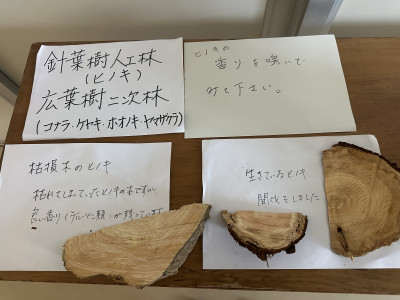 針葉樹人工林
(ヒノキ)
広葉樹二次林
(コナラ・ケヤキ・ホオノキ・ヤマザクラ)
ヒノキの
香りを嗅いで
みて下さい。
枯損木のヒノキ
枯れてしまったヒノキの木ですが、
良い香り(テルペン類)が残っています
生きているヒノキ
間伐をしました